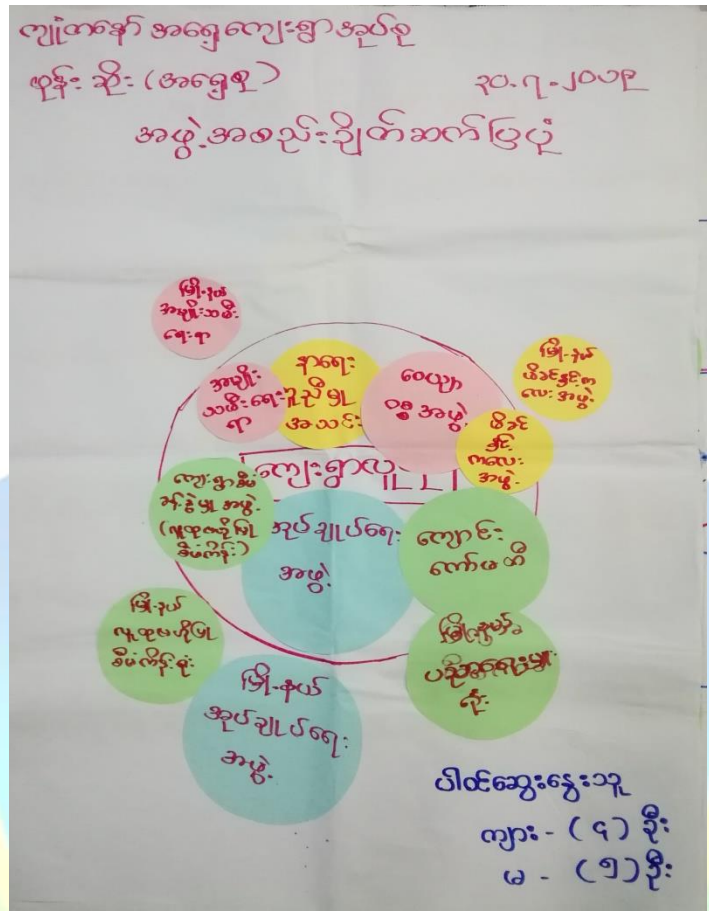 ကျုံကနော် အရှေ့ကျေးရွာအုပ်စု
ဖုန်းဆိုး (အရှေ့စု)
၃၀.၇.၂၀၁၉
အဖွဲ့အစည်းချိတ်ဆက်ပြပုံ
မြို့နယ်
အမျိုးသမီး
ရေးရာ
အမျိုး
သမီးရေး
ရာ
နာရေး
ကူညီမှု
အသင်း
ဝေယျာ
ဝစ္စအဖွဲ့
မြို့နယ်
မိခင်နှင့်က
လေးအဖွဲ့
မိခင်
နှင့်
ကလေး
အဖွဲ့
ကျေးရွာလူ
ကျေးရွာစီမံ
ခန့်ခွဲမှုအဖွဲ့
(လူထုဗဟိုပြု
စီမံကိန်း)
အုပ်ချုပ်ရေး
အဖွဲ့
ကျောင်း
ကော်မတီ
မြို့နယ်
လူထုဗဟိုပြု
စီမံကိန်းရုံး
မြို့နယ်
အုပ်ချုပ်ရေး
အဖွဲ့
ပညာရေးမှူး
ရုံး
ပါဝင်ဆွေးနွေးသူ
ကျား - (၄) ဦး
မ - (၅) ဦး